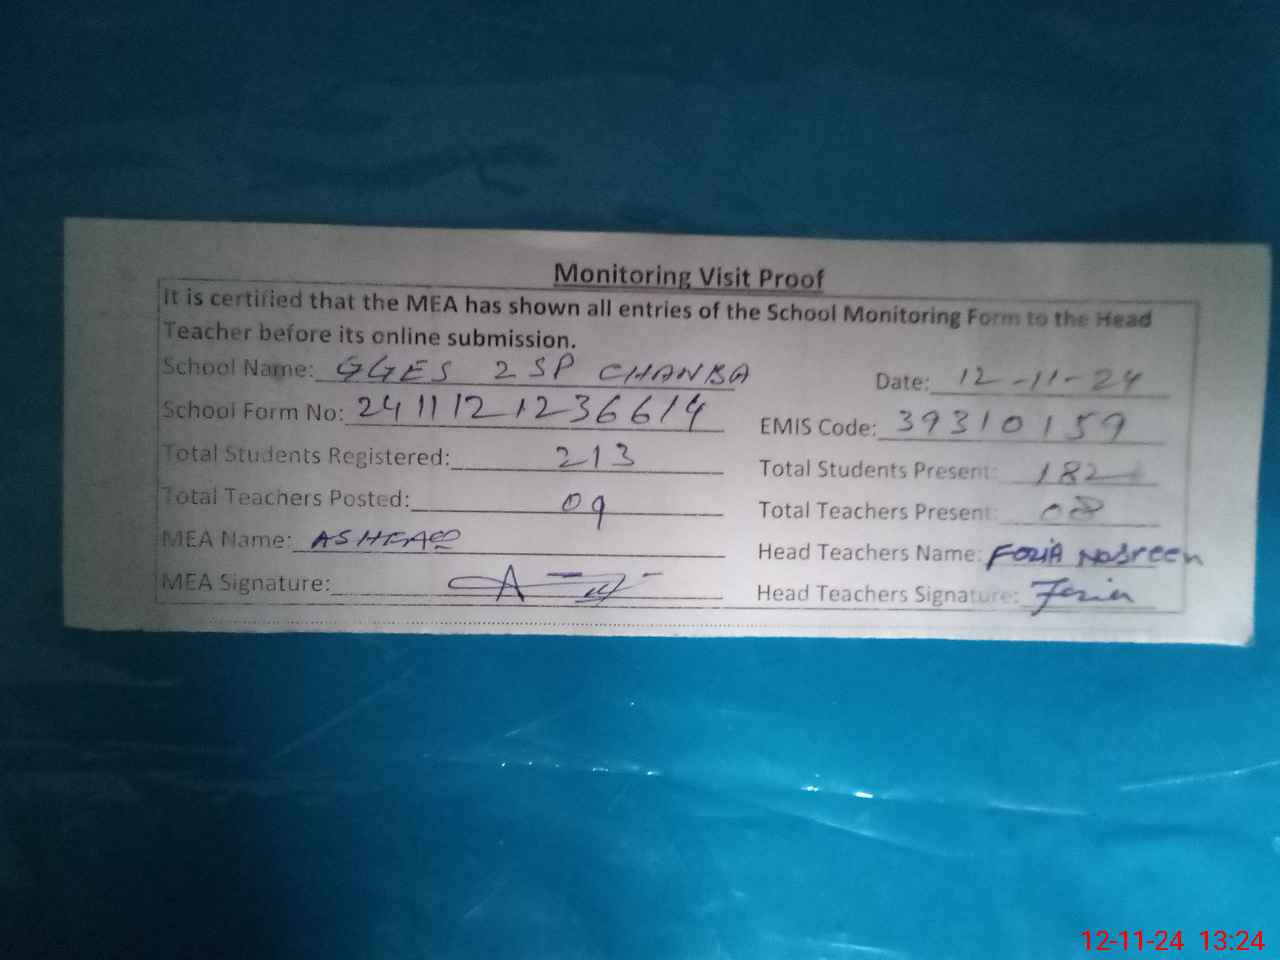 Monitoring Visit Proof
It is certified that the MEA has shown all entries of the School Monitoring Form to the Head
Teacher before its online submission.
School Name: GGES 2 SP CHANBA Date: 12-11-24
School Form No: 2411121236614 EMIS Code: 39310159
Total Students Registered: 213 Total Students Present: 182
Total Teachers Posted: 09 Total Teachers Present: 08
MEA Name: Head Teachers Name: FOZIA NOSREEN
MEA Signature: Head Teachers Signature: Fozia
12-11-24 13:24